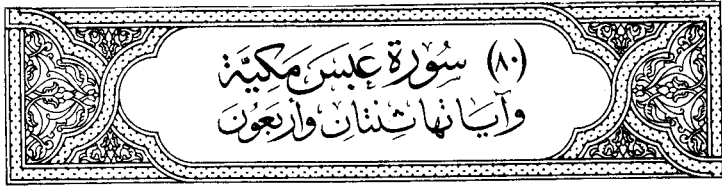 (٨٠) سُورَة عَبَسَ مَكيَّة
وَآيَاتهَا ثِنْتَانِ وَأَرْبَعُونَ